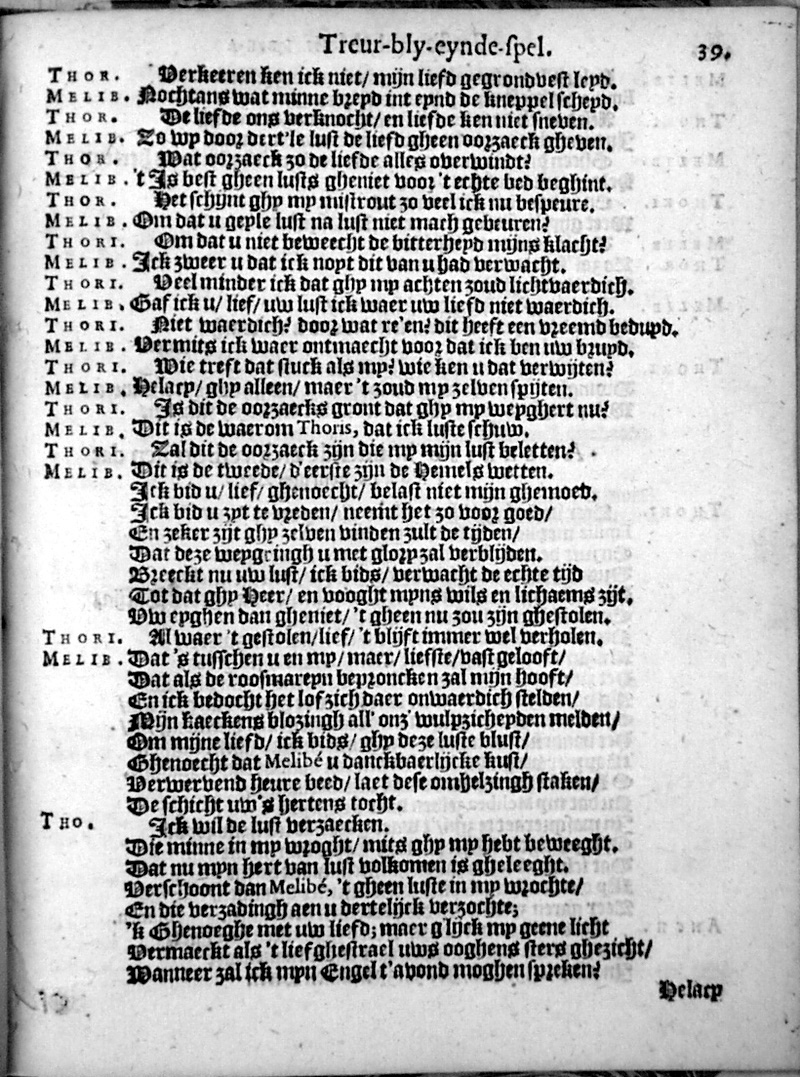 Treur-bly-eynde-spel. 39.
THOR. Verkeeren ken ick niet/ mijn liefd gegrondvest leyd.
MELIB. Nochtans wat minne breyd int eynd de kneppel scheyd.
THOR. De liefde ons verknocht/ en liefde ken niet sneven.
MELIB. Zo wy door dert'le lust de liefd gheen oorzaeck gheven.
THOR. Wat oorzaeck zo de liefde alles overwindt?
MELIB. 't Is best gheen lusts gheniet voor 't echte bed beghint.
THOR. Het schijnt ghy my mistrout zo veel ick nu bespeure.
MELIB. Om dat u geyle lust na lust niet mach gebeuren?
THORI. Om dat u niet beweecht de bitterheyd mijns klacht?
MELIB. Ick zweer u dat ick noyt dit van u had verwacht.
THORI. Veel minder ick dat ghy my achten zoud lichtvaerdich.
MELIB. Gaf ick u/ lief/ uw lust ick waer uw liefd niet waerdich.
THORI. Niet waerdich? door wat re'en? dit heeft een vreemd beduyd.
MELIB. Vermits ick waer ontmaecht voor dat ick ben uw bruyd.
THORI. Wie treft dat stuck als my? wie ken u dat verwijten?
MELIB. Helacy/ ghy alleen/ maer 't zoud my zelven spijten.
THORI. Is dit de oorzaecks gront dat ghy my weyghert nu?
MELIB. Dit is de waerom Thoris, dat ick luste schuw.
THORI. Zal dit de oorzaeck zijn die my mijn lust beletten?
MELIB. Dit is de tweede/ d'eerste zijn de Hemels wetten.
Ick bid u/ lief/ ghenoecht/ belast niet mijn ghemoed.
Ick bid u zyt te vreden/ neemt het zo voor goed/
En zeker zijt ghy zelven vinden zult de tijden/
Dat deze weygeringh u met glory zal verblijden.
Breeckt nu uw lust/ ick bids/ verwacht de echte tijd
Tot dat ghy Heer/ en vooght myns wils en lichaems zijt.
Uw eyghen dan gheniet/ 't gheen nu zou zijn ghestolen.
THORI. Al waer 't gestolen/lief/ 't blijft immer wel verholen.
MELIB. Dat 's tusschen u en my/ maer/ liefste/vast gelooft/
Dat als de roosmareyn beproncken zal mijn hooft/
En ick bedocht het lof zich daer onwaerdich stelden/
Mijn kaeckens blozingh all' onz' wulpzicheyden melden/
Om mijne liefd/ ick bids/ ghy deze luste blust/
Ghenoecht dat Melibé u danckbaerlijcke kust/
Verwervend heure beed/ laet dese omhelzingh staken/
De schicht uw's hertens tocht.
THO. Ick wil de lust verzaecken.
Die minne in my wroght/ mits ghy my hebt beweeght.
Dat nu myn hert van lust volkomen is gheleeght.
Verschoont dan Melibé, 't gheen luste in my wrochte/
En die verzadingh aen u dertelijck verzochte;
'k Ghenoeghe met uw liefd; maer g'lijck my geene licht
Vermaeckt als 't lief ghestrael uws ooghens sters ghezicht/
Wanneer zal ick myn Engel t'avond moghen spreken?
Helacy